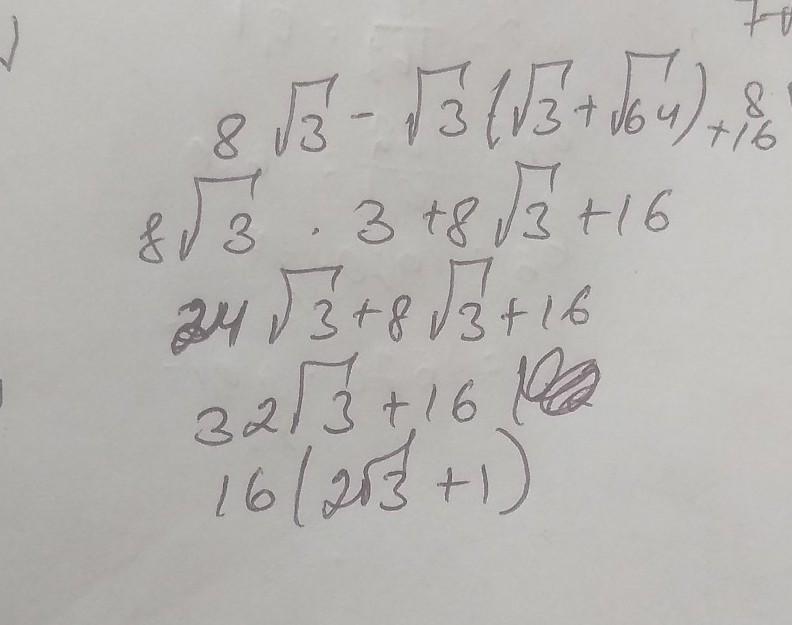 8√3 - √3(√3 + √64) + 16
8
8√3 · 3 + 8√3 + 16
24√3 + 8√3 + 16
32√3 + 16
16(2√3 + 1)